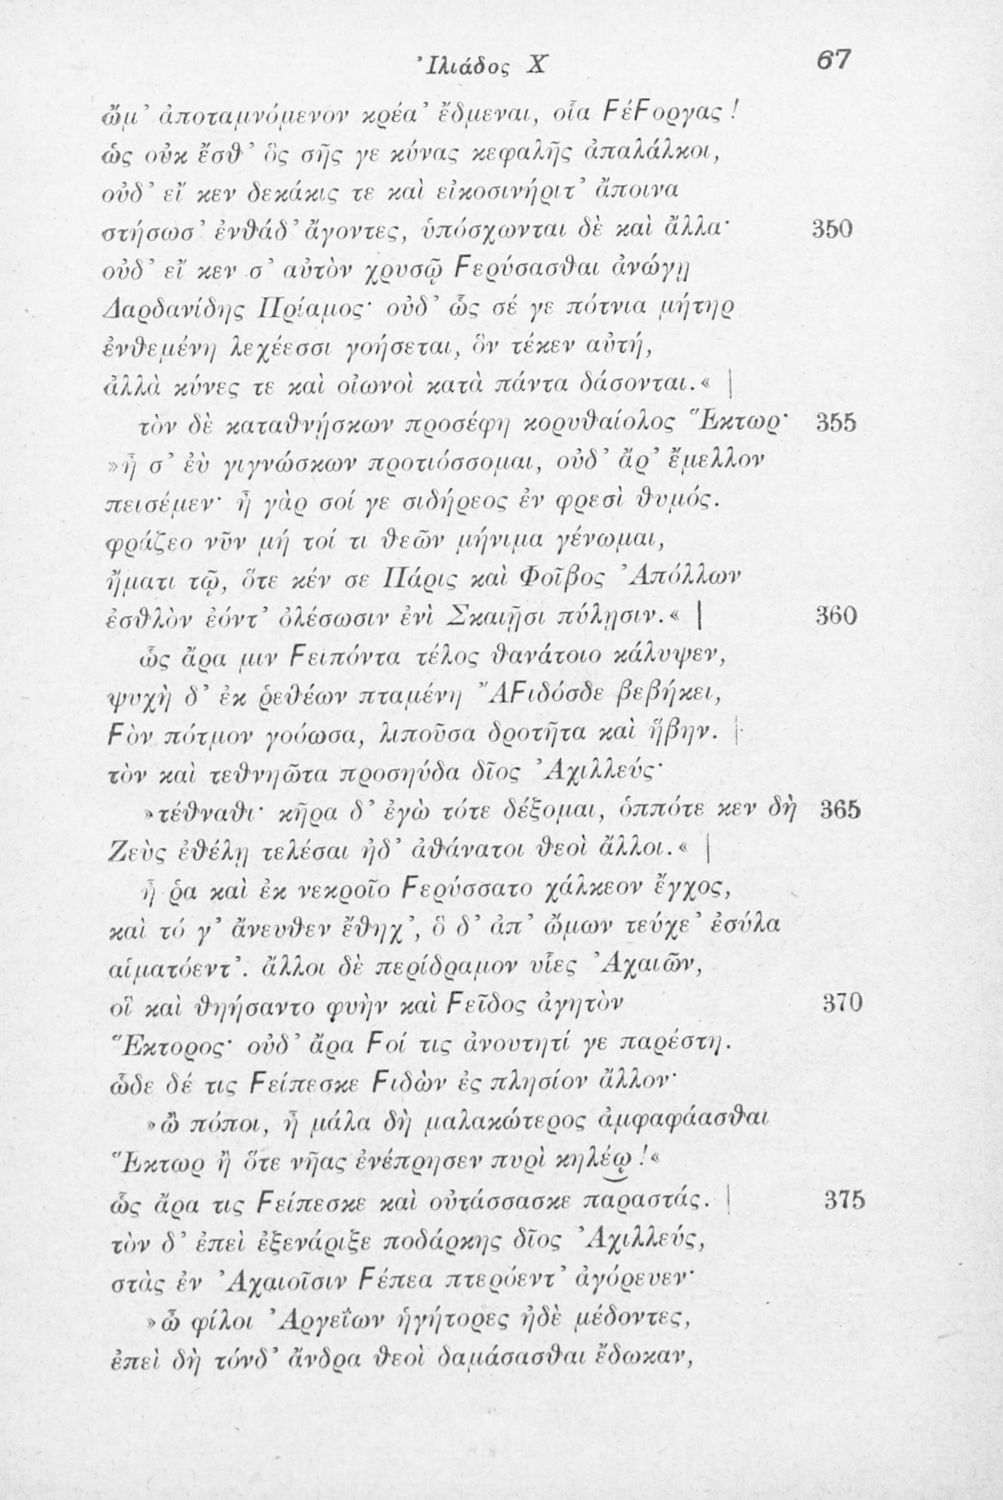 Ἰλιάδος Χ 67
ὤμ’ ἀποταμνόμενον κρέα’ ἔδμεναι, οἷα ϜέϜοργας!
ὡς οὐκ ἔσθ’ ὃς σῆς γε κύνας κεφαλῆς ἀπαλάλκοι,
οὐδ’ εἴ κεν δεκάκις τε καὶ εἰκοσινήριτ’ ἄποινα
στήσωσ’ ἐνθάδ’ ἄγοντες, ὑπόσχωνται δὲ καὶ ἄλλα· 350
οὐδ’ εἴ κεν σ’ αὐτὸν χρυσῷ Ϝερύσασθαι ἀνώγῃ
Δαρδανίδης Πρίαμος· οὐδ’ ὧς σέ γε πότνια μήτηρ
ἐνθεμένη λεχέεσσι γοήσεται, ὃν τέκεν αὐτή,
ἀλλὰ κύνες τε καὶ οἰωνοὶ κατὰ πάντα δάσονται.« |
τὸν δὲ καταθνῄσκων προσέφη κορυθαίολος Ἕκτωρ· 355
»ἦ σ’ ἐὺ γιγνώσκων προτιόσσομαι, οὐδ’ ἄρ’ ἔμελλον
πεισέμεν· ἦ γὰρ σοί γε σιδήρεος ἐν φρεσὶ θυμός.
φράζεο νῦν μή τοί τι θεῶν μήνιμα γένωμαι,
ἤματι τῷ, ὅτε κέν σε Πάρις καὶ Φοῖβος Ἀπόλλων
ἐσθλὸν ἐόντ’ ὀλέσωσιν ἐνὶ Σκαιῇσι πύλῃσιν.« | 360
ὣς ἄρα μιν Ϝειπόντα τέλος θανάτοιο κάλυψεν,
ψυχὴ δ’ ἐκ ῥεθέων πταμένη ἌϜιδόσδε βεβήκει,
Ϝὸν πότμον γοόωσα, λιποῦσα δροτῆτα καὶ ἥβην. |
τὸν καὶ τεθνηῶτα προσηύδα δῖος Ἀχιλλεύς·
»τέθναθι· κῆρα δ’ ἐγὼ τότε δέξομαι, ὁππότε κεν δὴ 365
Ζεὺς ἐθέλῃ τελέσαι ἠδ’ ἀθάνατοι θεοὶ ἄλλοι.« |
ἦ ῥα καὶ ἐκ νεκροῖο Ϝερύσσατο χάλκεον ἔγχος,
καὶ τό γ’ ἄνευθεν ἔθηχ’, ὃ δ’ ἀπ’ ὤμων τεύχε’ ἐσύλα
αἱματόεντ’. ἄλλοι δὲ περίδραμον υἷες Ἀχαιῶν,
οἳ καὶ θηήσαντο φυὴν καὶ Ϝεῖδος ἀγητὸν 370
Ἕκτορος· οὐδ’ ἄρα Ϝοί τις ἀνουτητί γε παρέστη.
ὧδε δέ τις Ϝείπεσκε Ϝιδὼν ἐς πλησίον ἄλλον·
»ὢ πόποι, ἦ μάλα δὴ μαλακώτερος ἀμφαφάασθαι
Ἕκτωρ ἢ ὅτε νῆας ἐνέπρησεν πυρὶ κηλέῳ!«
ὣς ἄρα τις Ϝείπεσκε καὶ οὐτάσσασκε παραστάς. | 375
τὸν δ’ ἐπεὶ ἐξενάριξε ποδάρκης δῖος Ἀχιλλεύς,
στὰς ἐν Ἀχαιοῖσιν Ϝέπεα πτερόεντ’ ἀγόρευεν·
»ὦ φίλοι Ἀργεΐων ἡγήτορες ἠδὲ μέδοντες,
ἐπεὶ δὴ τόνδ’ ἄνδρα θεοὶ δαμάσασθαι ἔδωκαν,